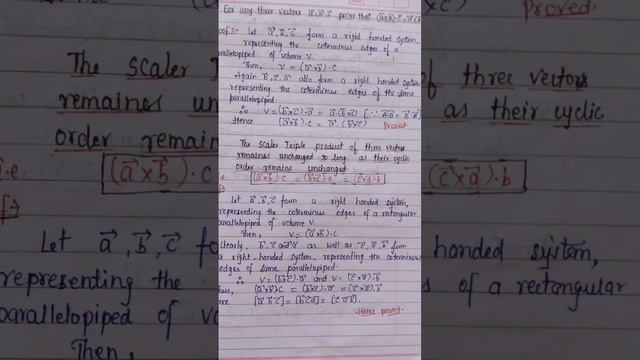 For any three vectors a⃗, b⃗, c⃗ prove that (a⃗×b⃗)·c⃗ = a⃗·(b⃗
oof:- Let a⃗, b⃗, c⃗ form a right handed system,
representing the coterminus edges of a
arallelopiped of volume V.
Then, V = (a⃗×b⃗)·c
Again b⃗, c⃗, a⃗ also form a right handed system
representing the coterminus edges of the same
parallelopiped.
∴ V = (b⃗×c⃗)·a⃗ = a⃗·(b⃗×c⃗)
Hence (a⃗×b⃗)·c = a⃗·(b⃗×c⃗) Proved.
The Scaler Teiple product of three vector
remains unchanged long as their cyclic
order remains unchanged.
i.e [(a⃗×b⃗)·c = (b⃗×c⃗)·a⃗ = (c⃗×a⃗)·b⃗]
Let a⃗, b⃗, c⃗ form a right handed system,
representing the coterminus edges of a rectangular
parallelopiped of volume V.
Then, V = (a⃗×b⃗)·c
clearly, b⃗, c⃗ as well as c⃗, a⃗, b⃗ form
a right-handed system, representing the coterminus
edges of same parallelopiped.
∴ V = (b⃗×c⃗)·a⃗ and V = (c⃗×a⃗)·b⃗
hus, (a⃗×b⃗)·c = (b⃗×c⃗)·a⃗ = (c⃗×a⃗)·b⃗
[a⃗ b⃗ c⃗] = [b⃗ c⃗ a⃗] = [c⃗ a⃗ b⃗].
Hence proved.
Proved.
The Scaler T
of three vectors
remaines un
as their cyclic
order remain
i.e (a⃗×b⃗)·c
(c⃗×a⃗)·b⃗
Let a⃗, b⃗, c⃗ fo
handed system,
representing the
s of a rectangular
parallelopiped of vo
Then,